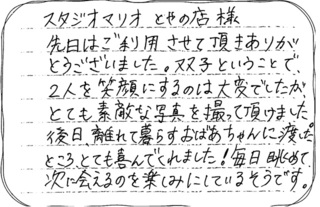 スタジオマリオ とやの店 様
先日はご利用させて頂きありが
とうございました。双子ということで、
2人を笑顔にするのは大変でしたが、
とても素敵な写真を撮って頂けました。
後日、離れて暮らすおばあちゃんに渡した
ところ、とても喜んでくれました！毎日眺めて、
次に会えるのを楽しみにしているそうです。